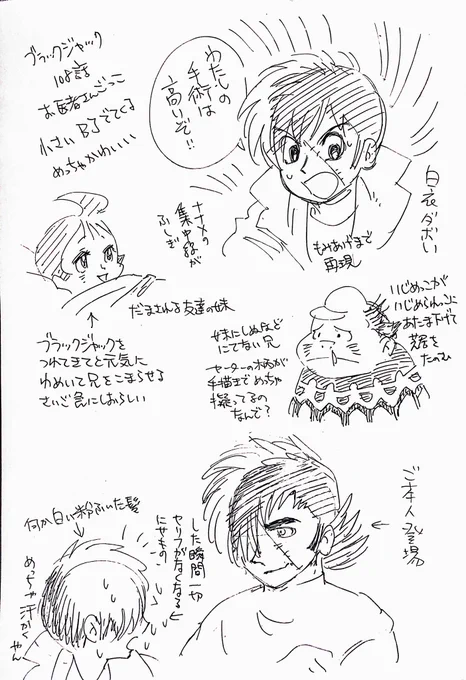 ブラックジャック
108話
お医者さんごっこ
小さいBJでてくる
めっちゃかわいい
わたしの
手術は
高いぞ!!
白衣ダボい
もみあげまで
再現
ナナメの
集中線が
ふしぎ
だまされる友達の妹
ブラックジャックを
つれてきてと元気に
わめいて兄をこまらせる
さいご急にしおらしい
いじめっこが
いじめられっこに
あたま下げて
芝居を
たのむ
妹にしぬほど
にてない兄
セーターの柄が
手描きでめっちゃ
凝ってるの
なんで?
ご本人登場
した瞬間一切
セリフがなくなる
にせもの
何か白い粉ふいた髪
めっちゃ汗かく
やん